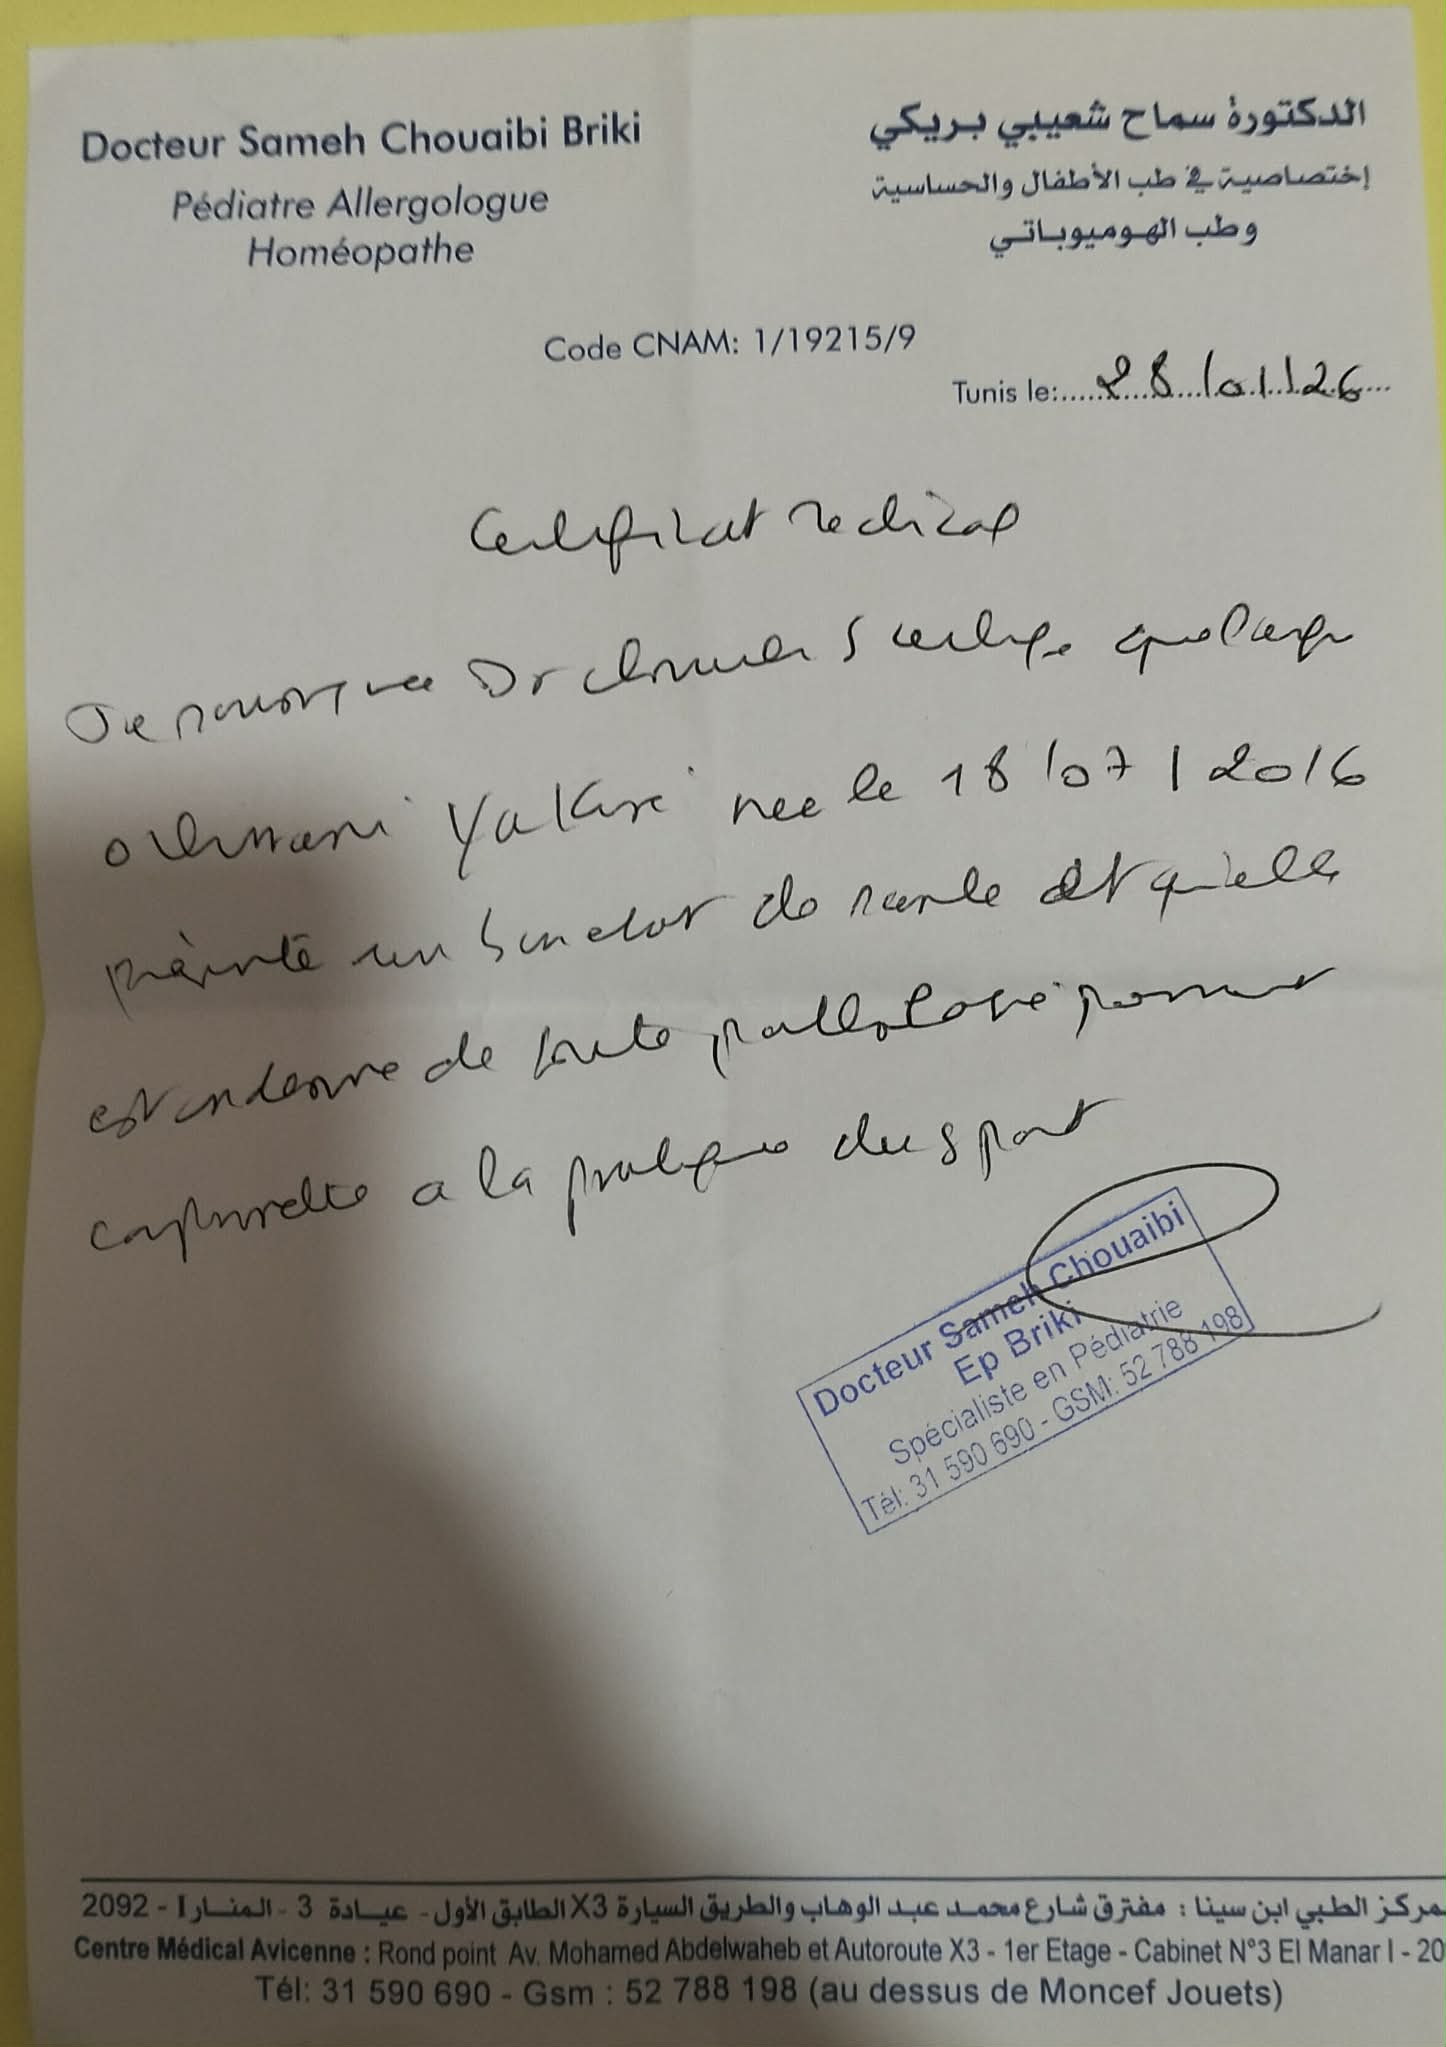 Docteur Sameh Chouaibi Briki
Pédiatre Allergologue
Homéopathe
الدكتورة سماح شعيبي بريكي
إختصاصية في طب الأطفال والحساسية
وطب الهوميوباتي
Code CNAM: 1/19215/9
Tunis le: 28/01/26
Certificat medical
Je Dr S certifie que
née le 18/07/2016
présente un bon etat de santé et qu'elle
est indemne de toute pathologie pouvant
a la pratique du sport
Docteur Sameh Chouaibi
Ep Briki
Spécialiste en Pédiatrie
Tél: 31 590 690 - GSM: 52 788 198
مركز الطبي ابن سينا : مفترق شارع محمد عبد الوهاب والطريق السيارة X3 الطابق الأول - عيادة 3 - المنار I - 2092
Centre Médical Avicenne : Rond point Av. Mohamed Abdelwaheb et Autoroute X3 - 1er Etage - Cabinet N°3 El Manar I - 20
Tél: 31 590 690 - Gsm : 52 788 198 (au dessus de Moncef Jouets)